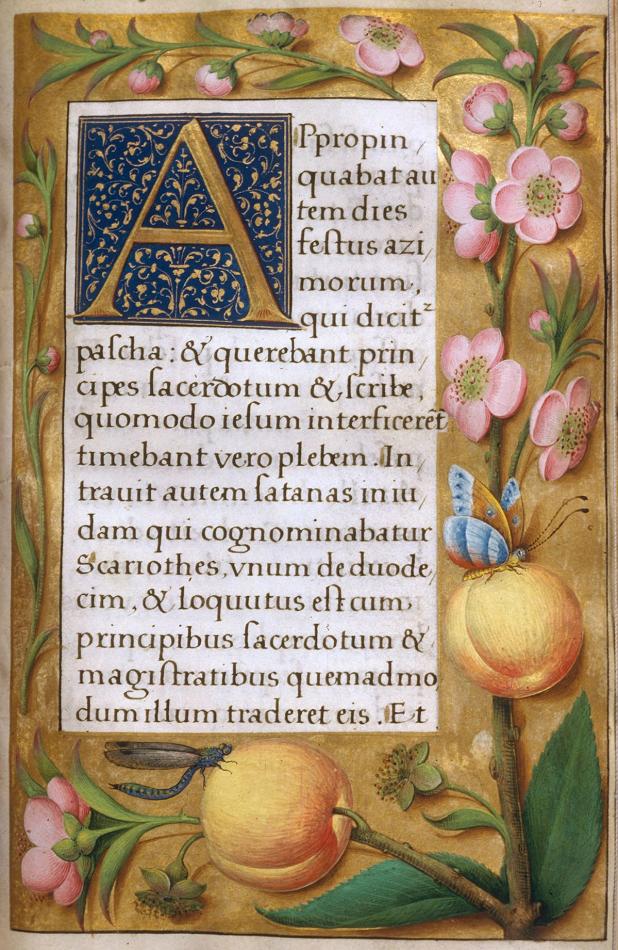 APpropin
quabat au
tem dies
feſtus azi,
morum,
qui dicitᷣ
paſcha: & querebant prin
cipes ſacerdotum & ſcribe,
quomodo ieſum interficerēt
timebant vero plebem. In,
trauit autem ſatanas in iu,
dam qui cognominabatur
Scariothes, vnum de duode,
cim, & loquutus eſt cum
principibus ſacerdotum &
magiſtratibus quemadmo,
dum illum traderet eis. Et